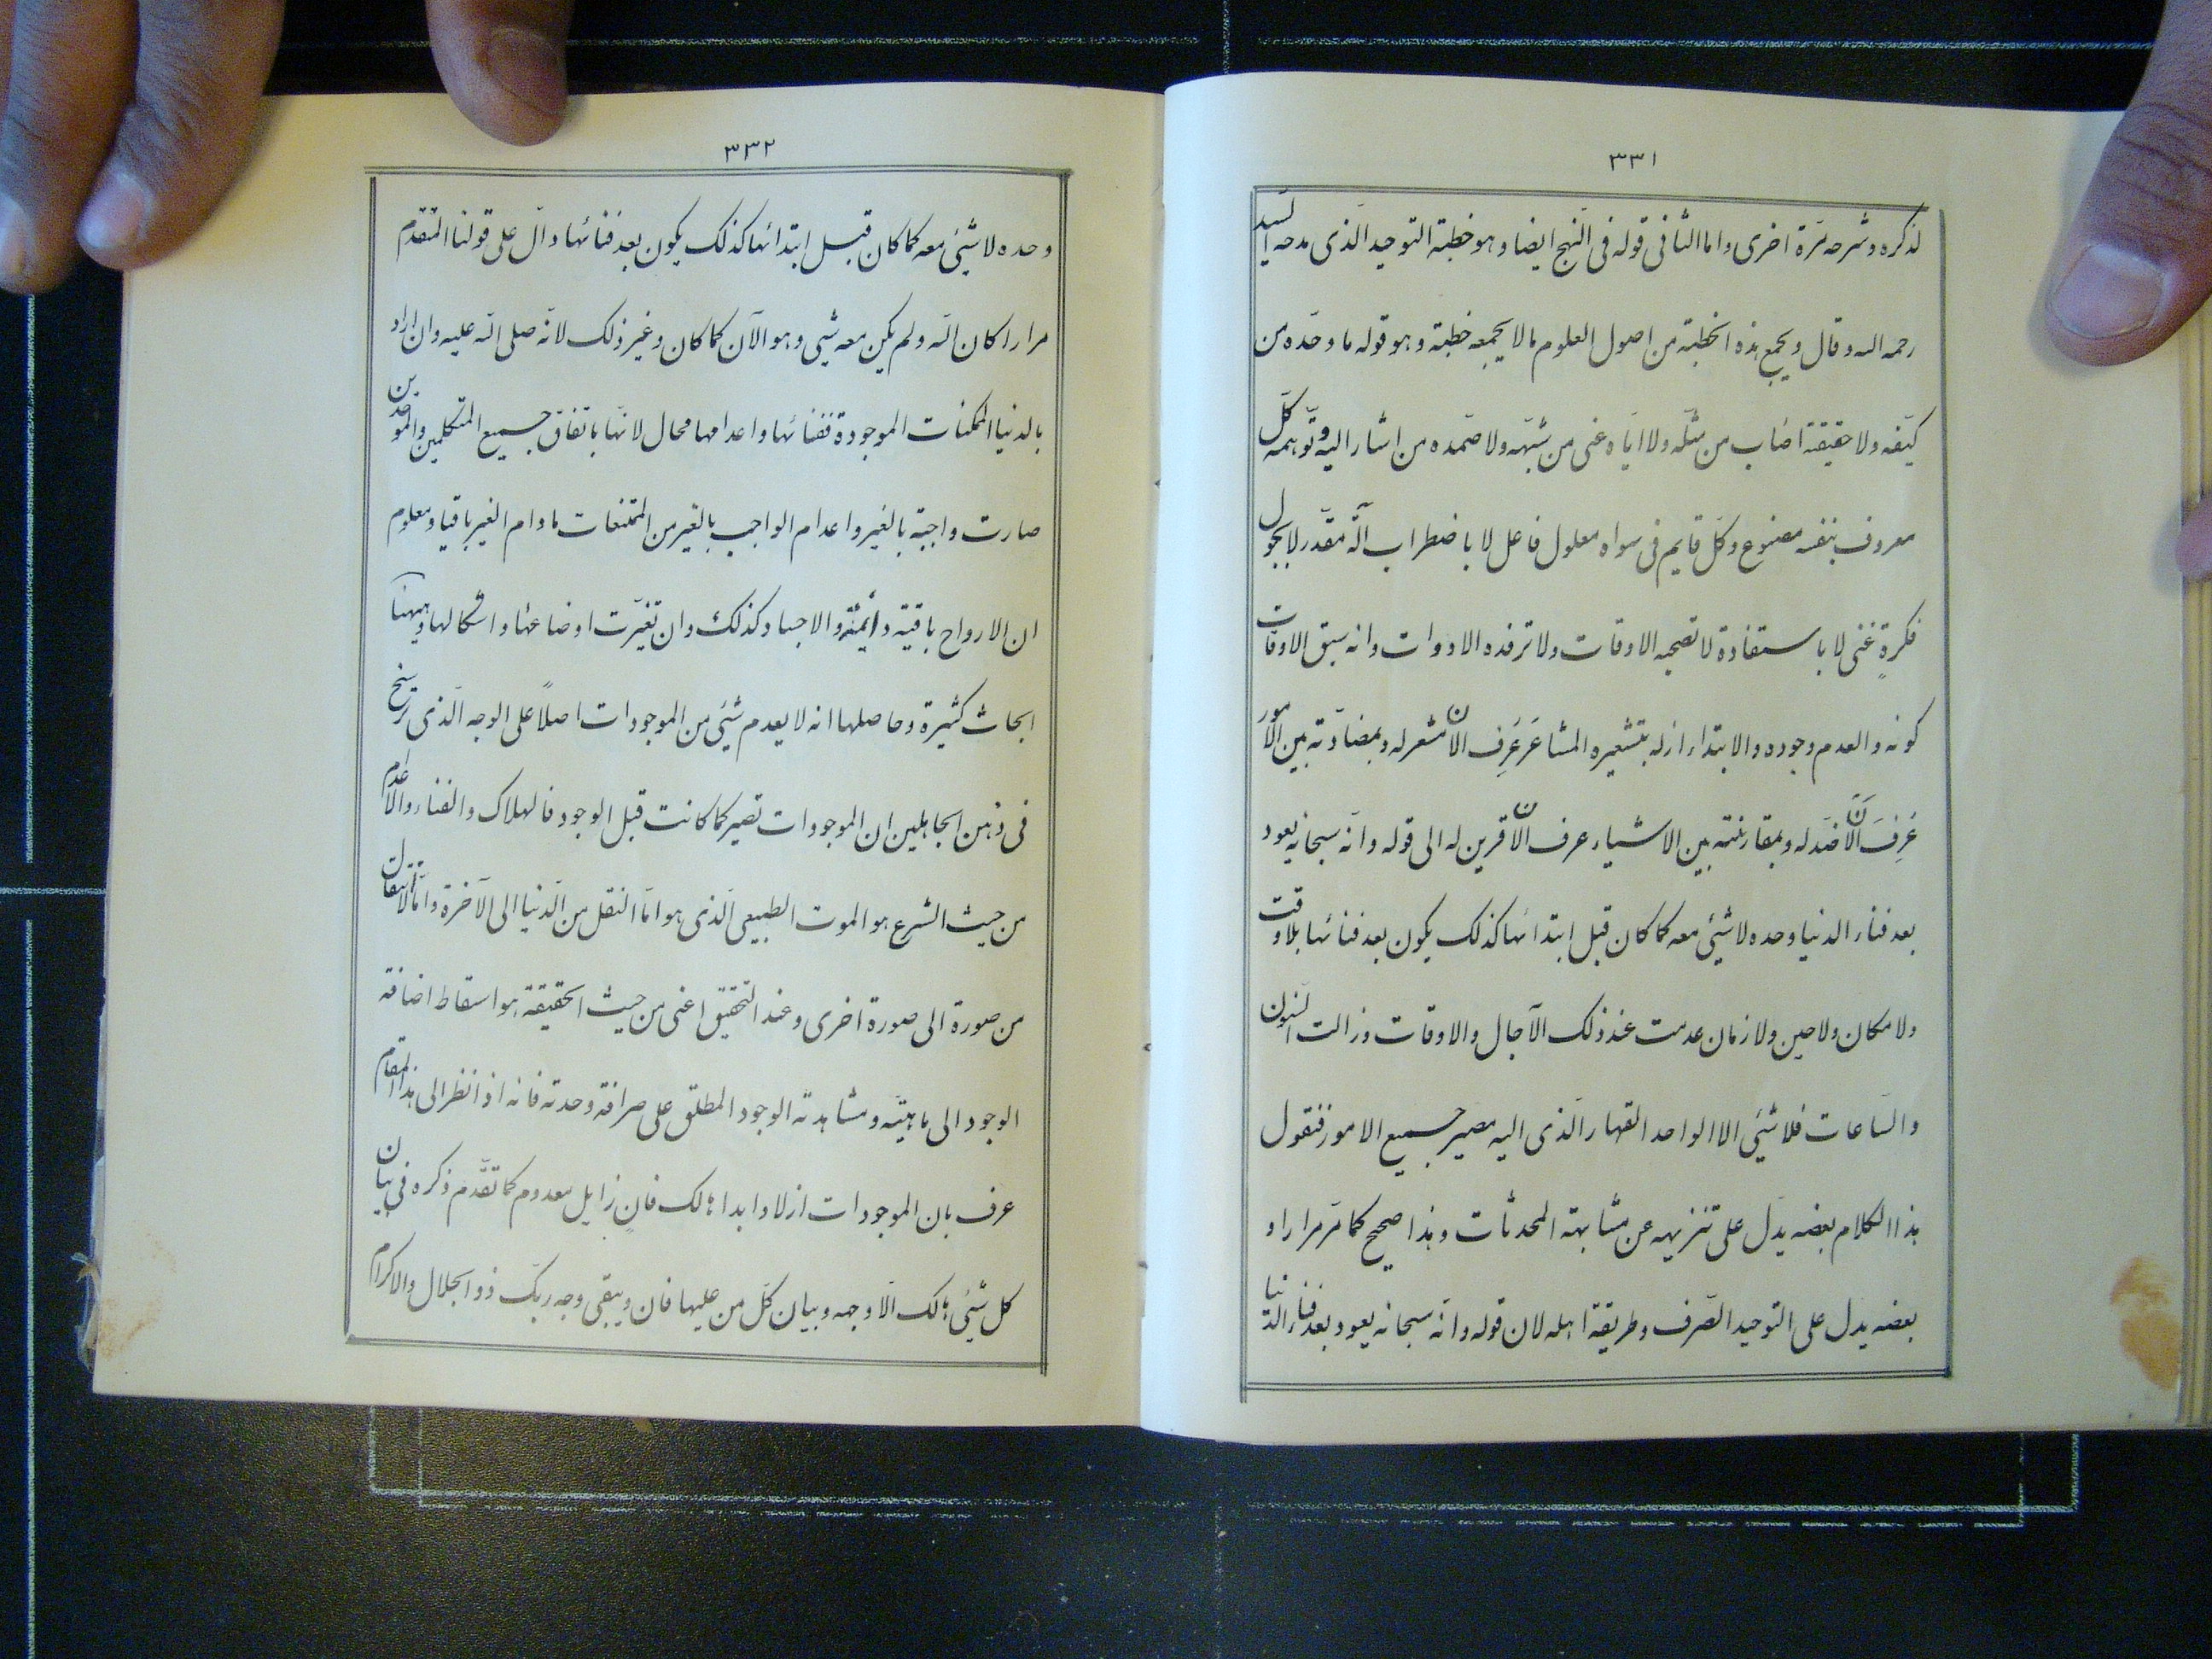 ٣٣١
لذكره و شرحه مَرّة اخرى و اما الثانى قوله فى النّهج ايضا و هو خطبة التوحيد الّذى مدحه السّيد
رحمه الله و قال و يجمع هذه الخطبة من اصول العلوم ما لا يجمعه خطبة و هو قوله ما وحّده من
كيّفه ولا حقيقة اصاب من مثّله ولا ايّاه عنى من شبّهه ولا صمّده من اشار اليه و توهمه كلّ
معروف بنفسه مصنوع و كلّ قايم فى سواه معلول فاعل لا باضطراب آلة مقدّر لا بجول
فكرةٍ غنى لا باستفادة لا تصحبه الاوقات ولا ترفده الادوات و انه سبق الاوقات
كونه و العدم وجوده و الابتداء ازله بتشعيره المشاعر عَرِف ان لا مشعر له و بمضادّته بين الامور
عُرِفَ ان لا ضدّ له و بمقارنته بين الاشياء عرف ان لا قرين له الى قوله و انّه سبحانه يعود
بعد فناء الدنيا وحده لا شيئ معه كما كان قبل ابتدائها كذلك يكون بعد فنائها بلا وقت
ولا مكان ولا حين ولا زمان عدمت عند ذلك الآجال و الاوقات و زالت السّنون
و السّاعات فلا شيئ الا الواحد القهار الّذى اليه مصير جميع الامور فنقول
هذا الكلام بعضه يدلّ على تنزيهه عن مشابهة المحدثات و هذا صحيح كما مرّ مرارا و
بعضه يدل على التوحيد الصّرف و طريقة اهله لان قوله و انّه سبحانه يعود بعد فناء الدّنيا
٣٣٢
وحده لا شيئ معه كما كان قبل ابتدائها كذلك يكون بعد فنائها دالّ على قولنا المتقدّم
مرارا كان الله و لم يكن معه شيئ و هو الآن كما كان و غير ذلك لانّه صلى الله عليه و ان اراد
بالدنيا الممكنات الموجودة ففنائها و اعدامها محال لانّها باتفاق جميع المتكلمين و الموحدين
صارت واجبة بالغير و اعدام الواجب بالغير من الممتنعات ما دام الغير باقيا و معلوم
ان الارواح باقية دائمة و الاجساد كذلك و ان تغيّرت اوضاعها و اشكالها و هيهنا
ابحاث كثيرة و حاصلها انه لا يعدم شيئ من الموجودات اصلاً على الوجه الّذى ترسخ
فى ذهن الجاهلين ان الموجودات تصير كما كانت قبل الوجود فالهلاك و الفناء و الاعدام
من حيث الشرع هو الموت الطبيعى الّذى هو امّا النقل من الدّنيا الى الآخرة و امّا الانتقال
من صورة الى صورة اخرى و عند التحقيق اعنى من حيث الحقيقة هو اسقاط اضافة
الوجود الى ماهيته و مشاهدته الوجود المطلق على صرافة وحدته فانه اذا نظر الى هذا المقام
عرف بان الموجودات ازلا و ابدا هالك فانٍ زايل معدوم كما تقدّم ذكره فى بيان
كل شيئ هالك الّا وجهه و بيان كلّ من عليها فان و يبقى وجه ربّك ذو الجلال و الاكرام